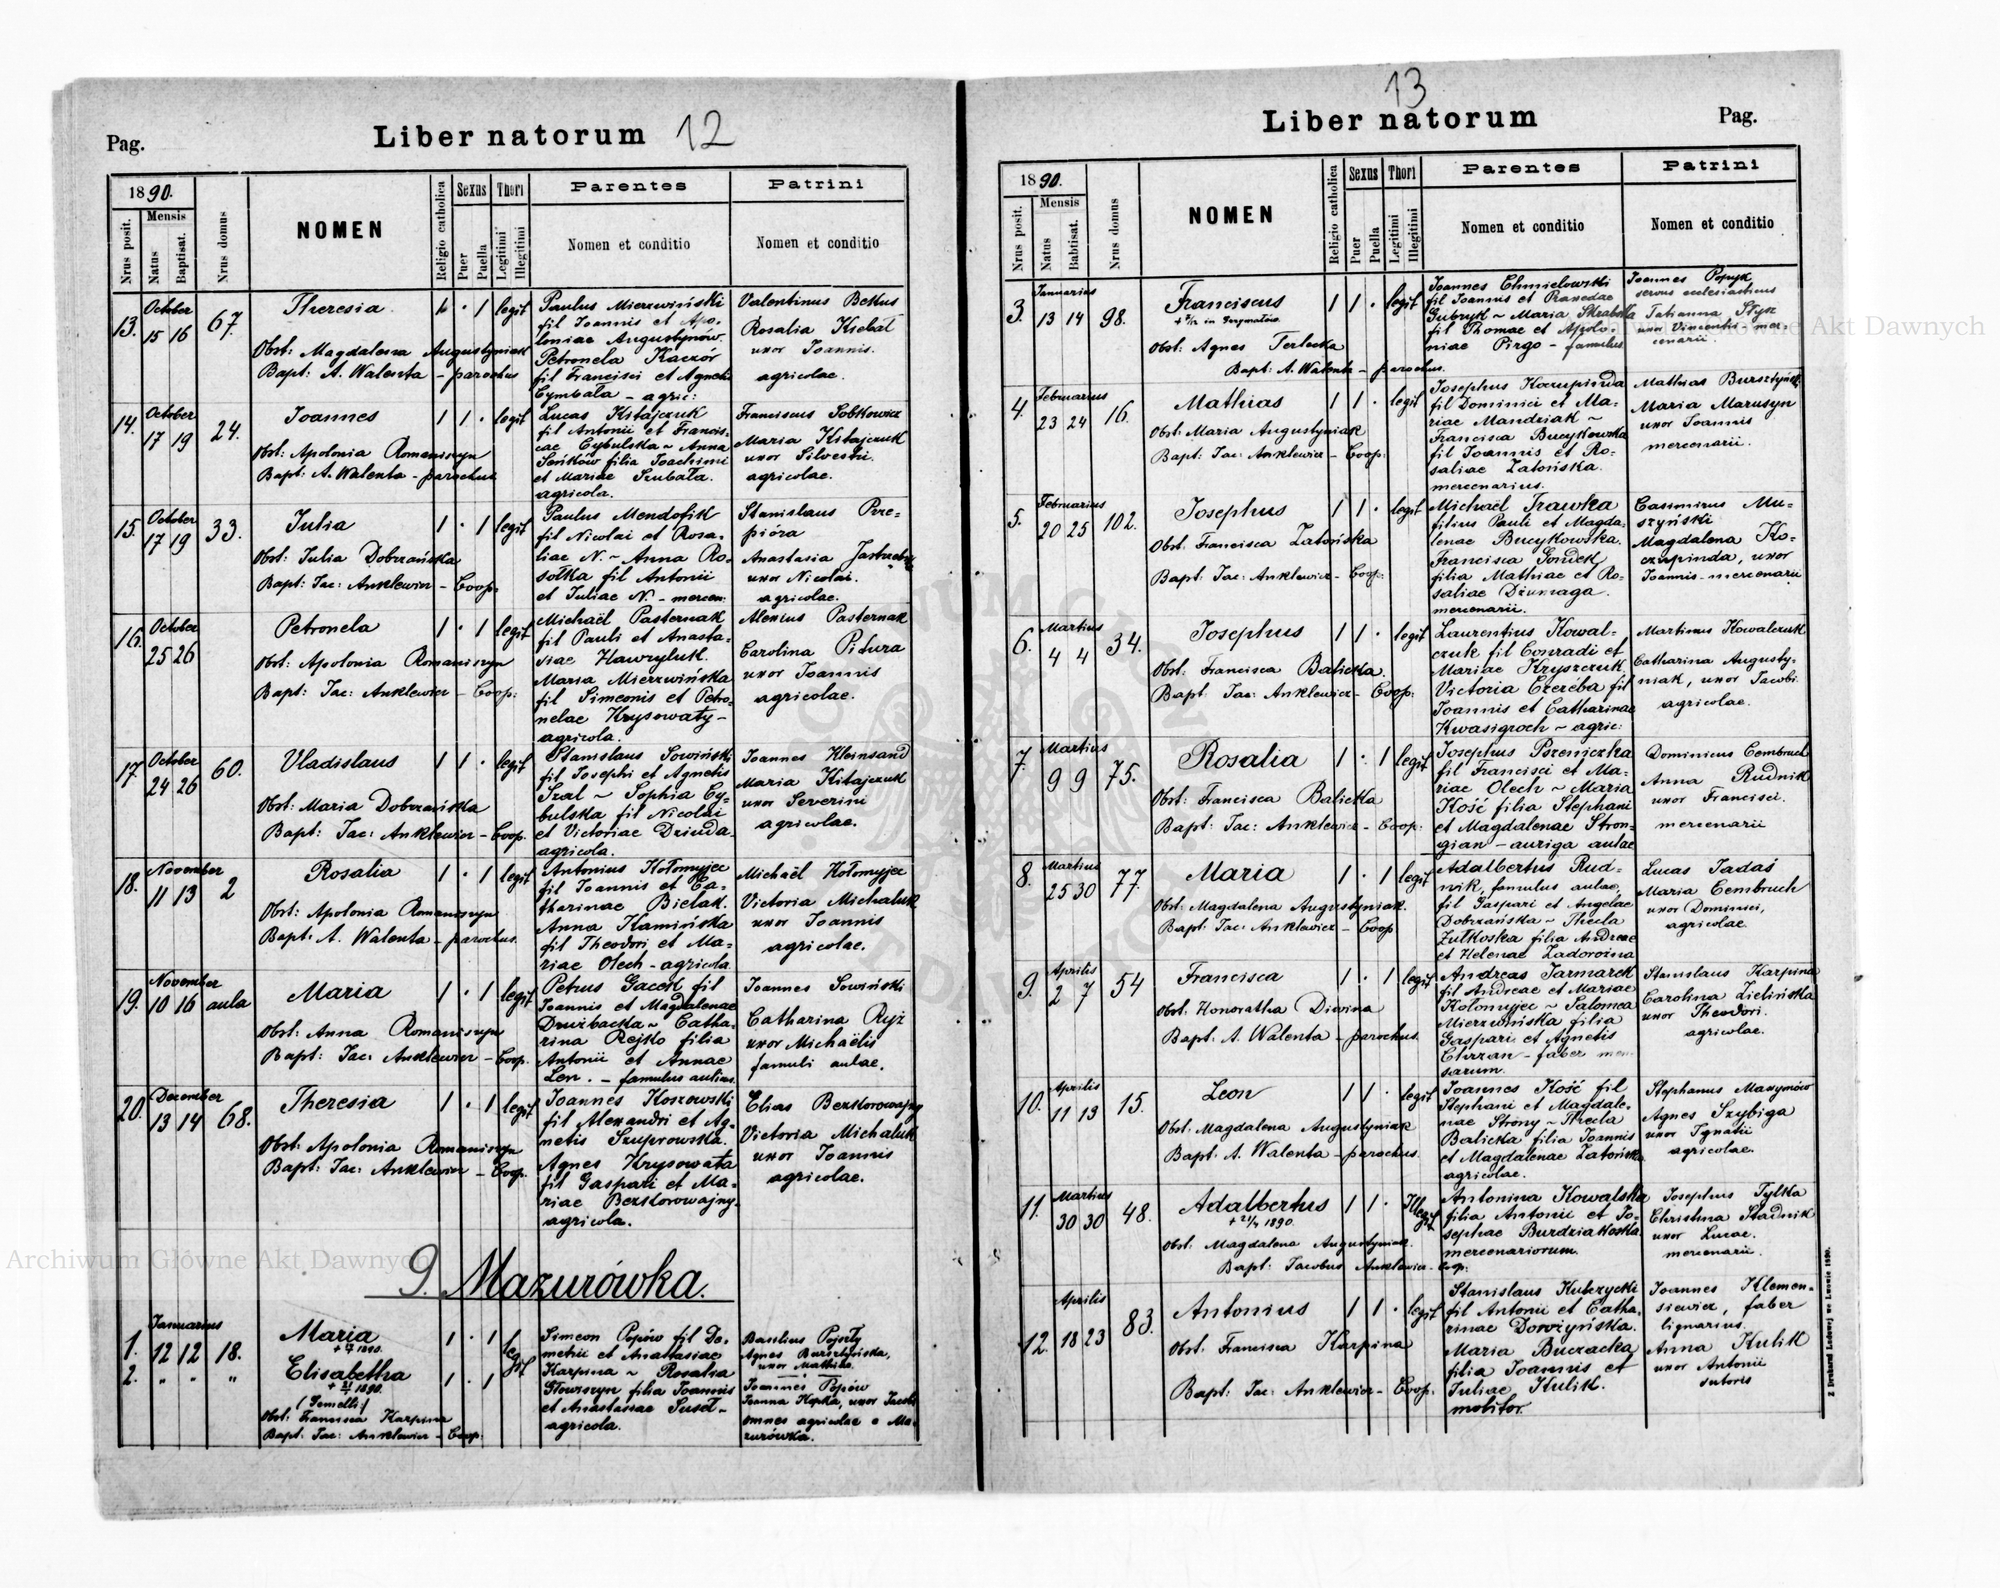 Pag.
Liber natorum 12
1890.
Nrus posit.
Mensis
Natus
Baptisat.
Nrus domus
NOMEN
Religio catholica
Sexus
Puer
Puella
Thori
Legitimi
Illegitimi
Parentes
Nomen et conditio
Patrini
Nomen et conditio
13.
October
15 16
67.
Theresia.
1 . 1 legit
Obst: Magdalena Augustyniak
Bapt: A. Walenta - parochus
Paulus Mierzwiński
fil Joannis et Apo-
loniae Augustynów.
Petronela Kaczór
fil Francisci et Agnetis
Cymbała - agric:
Valentinus Bekus
Rosalia Kiebał
uxor Joannis.
agricolae.
14.
October
17 19
24.
Joannes
1 1 . legit
Obst: Apolonia Romaniszyn
Bapt: A. Walenta - parochus
Lucas Kitajczuk
fil Antonii et Francis-
cae Cybulska ~ Anna
Seńków filia Joachimi
et Mariae Szubała.
agricola.
Franciscus Sobkowicz
Maria Kitajczuk
uxor Silvestri.
agricolae.
15.
October
17 19
33.
Julia
1 . 1 legit
Obst: Julia Dobrzańska
Bapt: Jac: Anklewicz - Coop:
Paulus Mendofik
fil Nicolai et Rosa-
liae N. ~ Anna Ro-
sołka fil Antonii
et Juliae N. - mercen:
Stanislaus Prze-
pióra
Anastasia
uxor Nicolai.
agricolae.
16.
October
25 26
Petronela
1 . 1 legit
Obst: Apolonia Romaniszyn
Bapt: Jac: Anklewicz - Coop:
Michaël Pasternak
fil Pauli et Anasta-
siae Hawryluk.
Maria Mierzwińska
fil Simeonis et Petro-
nelae Krysowaty -
agricola.
Alexius Pasternak
Carolina Pitura
uxor Joannis
agricolae.
17.
October
24 26
60.
Vladislaus
1 1 . legit
Obst: Maria Dobrzańska
Bapt: Jac: Anklewicz - Coop.
Stanislaus Sowiński
fil Josephi et Agnetis
Szal ~ Sophia Cy-
bulska fil Nicolai
et Victoriae Dziuda-
agricola.
Joannes Kleinsand
Maria Kitajczuk
uxor Severini
agricolae.
18.
November
11 13
2
Rosalia
1 . 1 legit
Obst: Apolonia Romaniszyn
Bapt: A. Walenta - parochus.
Antonius Kołomyjec
fil Joannis et Ca-
tharinae Bielak.
Anna Kamińska
fil Theodori et Ma-
riae Olech - agricola.
Michaël Kołomyjec
Victoria Michaluk
uxor Joannis
agricolae.
19.
November
10 16
aula
Maria
1 . 1 legit
Obst: Anna Romaniszyn
Bapt: Jac: Anklewicz - Coop.
Petrus Gacek fil
Joannis et Magdalenae
Drużbacka ~ Catha-
rina Rejko filia
Antonii et Annae
Len. - famulus aulicus.
Joannes Sowiński
Catharina Ryż
uxor Michaëlis
famuli aulae.
20.
December
13 14
68.
Theresia
1 . 1 legit
Obst: Apolonia Romaniszyn
Bapt: Jac: Anklewicz - Coop.
Joannes Koszowski
fil Alexandri et Ag-
netis Szuprowska.
Agnes Krysowata
fil Gaspari et Ma-
riae Bezkorowajny-
agricola.
Elias Bezkorowajny
Victoria Michaluk
uxor Joannis
agricolae.
9. Mazurówka.
1.
Januarius
12 12
18.
Maria
1 . 1 legit
2.
" " "
Elisabetha
1 . 1
(Gemelli)
Obst: Francisca Karpina
Bapt: Jac: Anklewicz - Coop.
Simeon Popów fil De-
metrii et Anastasiae
Karpina ~ Rosalia
Głowiszyn filia Joannis
et Anastasiae Suseł -
agricola.
Basilius Pojszły
Agnes Bursztyńska,
uxor Mathiae.
Joannes Popów
Joanna Kopka, uxor Jacobi
omnes agricolae e Ma-
zurówka.
13
Liber natorum
Pag.
1890.
Nrus posit.
Mensis
Natus
Babtisat.
Nrus domus
NOMEN
Religio catholica
Sexus
Puer
Puella
Thori
Legitimi
Illegitimi
Parentes
Nomen et conditio
Patrini
Nomen et conditio
3.
Januarius
13 14
98.
Franciscus
1 1 . legit
Obst: Agnes Terlecka
Bapt: A. Walenta - parochus.
Joannes Chmielowski
fil Joannis et Praxedae
Gubryk ~ Maria Skrabska
fil Thomae et Apolo-
niae Pirgo - famulus
Joannes Popyk
servus ecclesiasticus
Tatianna Stysz
uxor Vincentii mer-
cenarii.
4.
Februarius
23 24
16.
Mathias
1 1 . legit
Obst: Maria Augustyniak
Bapt: Jac: Anklewicz - Coop:
Josephus Koczupinda
fil Dominici et Ma-
riae Mandziak ~
Francisca Bucykowska
fil Joannis et Ro-
saliae Zatońska.
mercenarius.
Mathias Bursztyński
Maria Marusyn
uxor Joannis
mercenarii.
5.
Februarius
20 25
102.
Josephus
1 1 . legit
Obst: Francisca Zatońska
Bapt: Jac: Anklewicz - Coop:
Michaël Trawka
filius Pauli et Magda-
lenae Bucykowska.
Francisca Gondek
filia Mathiae et Ro-
saliae Dżumaga.
mercenarii.
Casimirus Mu-
szyński
Magdalena Ko-
czupinda, uxor
Joannis - mercenarii
6.
Martius
4 4
34.
Josephus
1 1 . legit
Obst: Francisca Balicka.
Bapt: Jac: Anklewicz - Coop:
Laurentius Kowal-
czuk fil Conradi et
Mariae Kryszczuk.
Victoria Czeréba fil
Joannis et Catharinae
Kwasigroch ~ agric:
Martinus Kowalczuk
Catharina Augusty-
niak, uxor Jacobi
agricolae.
7.
Martius
9 9
75.
Rosalia
1 . 1 legit
Obst: Francisca Balicka
Bapt: Jac: Anklewicz - Coop:
Josephus Pszeniczka
fil Francisci et Ma-
riae Olech ~ Maria
Kość filia Stephani
et Magdalenae Stron-
gian - auriga aulae
Dominicus Cembruch
Anna Rudnik
uxor Francisci.
mercenarii
8.
Martius
25 30
77.
Maria
1 . 1 legit
Obst: Magdalena Augustyniak.
Bapt: Jac: Anklewicz - Coop
Adalbertus Rud-
nik, famulus aulae,
fil Gaspari et Angelae
Dobrzańska ~ Thecla
Żułkoska filia Andreae
et Helenae Zadorożna
Lucas Tadaś
Maria Cembruch
uxor Dominici,
agricolae.
9.
Aprilis
2 7
54
Francisca
1 . 1 legit
Obst: Honoratha Diovina
Bapt: A. Walenta - parochus.
Andreas Jarmarek
fil Andreae et Mariae
Kołomyjec ~ Salomea
Mierzwińska filia
Gaspari et Agnetis
Chrzan - faber men-
sarum.
Stanislaus Karpina
Carolina Zielińska
uxor Theodori.
agricolae.
10.
Aprilis
11 13
15.
Leon
1 1 . legit
Obst: Magdalena Augustyniak
Bapt: A. Walenta - parochus.
Joannes Kość fil
Stephani et Magdale-
nae Strony ~ Thecla
Balicka filia Joannis
et Magdalenae Zatońska
agricolae.
Stephanus Maxymów
Agnes Szybiga
uxor Ignatii
agricolae.
11.
Martius
30 30
48.
Adalbertus
1 1 . Illegit
Obst: Magdalena Augustyniak.
Bapt: Jacobus Anklewicz - Coop:
Antonina Kowalska
filia Antonii et Jo-
sephae Burdziakoska.
mercenariorum.
Josephus Tylka
Christina Stadnik
uxor Lucae.
mercenarii.
12.
Aprilis
18 23
83.
Antonius
1 1 . legit
Obst: Francisca Karpina
Bapt: Jac: Anklewicz - Coop:
Stanislaus Kubrycki
fil Antonii et Catha-
rinae Dowżyńska.
Maria Buczacka
filia Joannis et
Juliae Kulik.
molitor.
Joannes Klemen-
siewicz, faber
lignarius.
Anna Kulik
uxor Antonii
sutoris
Z Drukarni Ludowej we Lwowie 1890.
Archiwum Główne Akt Dawnych
Archiwum Główne Akt Dawnych